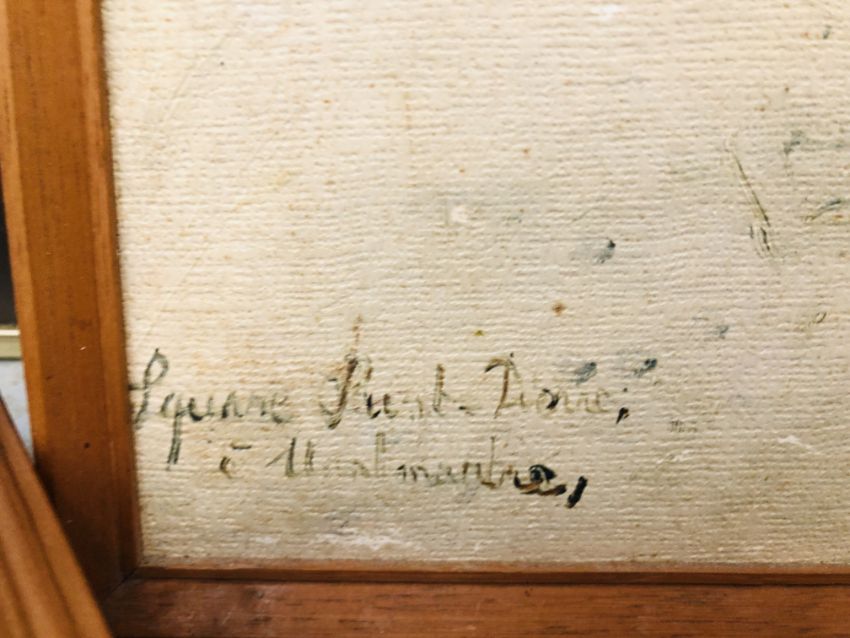 Square Saint-Pierre,
à Montmartre,